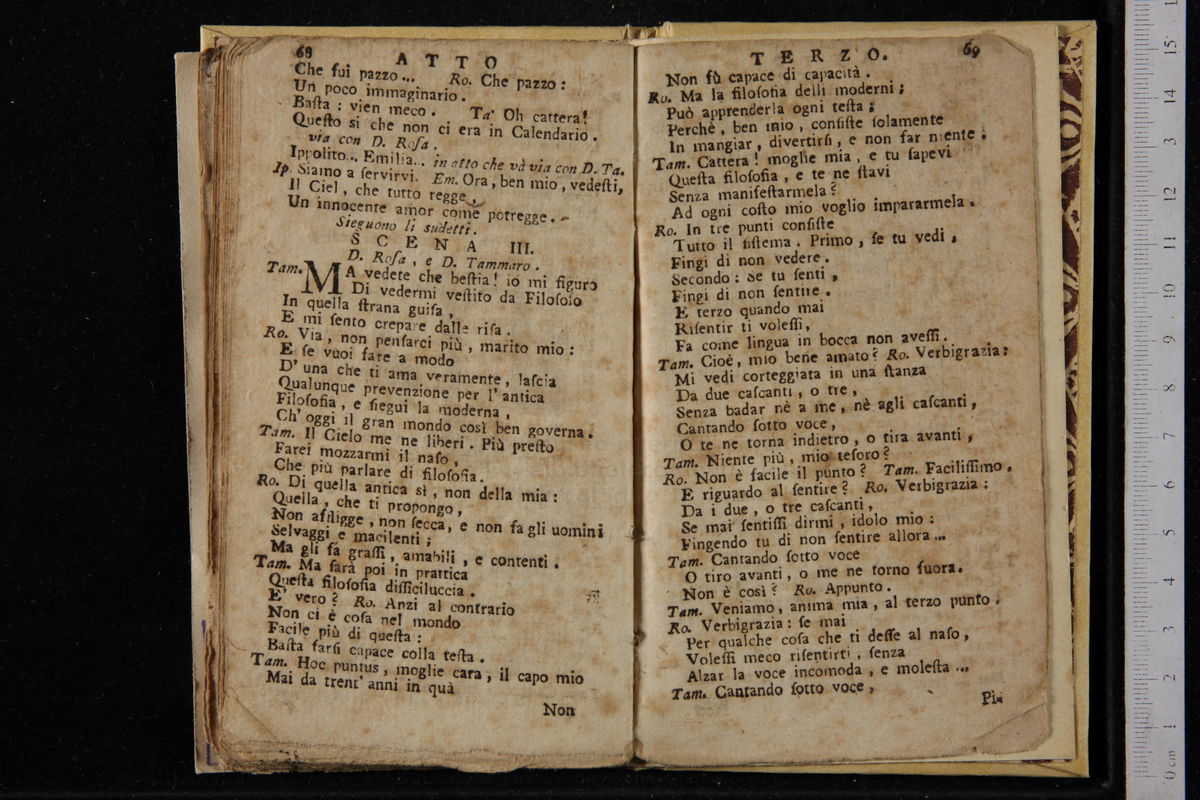 68
ATTO
Che fui pazzo... Ro. Che pazzo:
Un poco immaginario.
Baſta: vien meco. Ta. Oh cattera!
Queſto si che non ci era in Calendario.
via con D. Roſa.
Ippolito... Emilia... in atto che và via con D. Ta.
Ip. Siamo a ſervirvi. Em. Ora, ben mio, vedeſti,
Il Ciel, che tutto regge,
Un innocente amor come potregge.
Sieguono li sudetti.
SCENA III.
D. Roſa, e D. Tammaro.
Tam. MA vedete che beſtia! io mi figuro
Di vedermi veſtito da Filoſofo
In quella ſtrana guiſa,
E mi ſento crepare dalle riſa.
Ro. Via, non penſarci più, marito mio:
E ſe vuoi fare a modo
D' una che ti ama veramente, laſcia
Qualunque prevenzione per l' antica
Filoſofia, e ſiegui la moderna,
Ch' oggi il gran mondo così ben governa.
Tam. Il Cielo me ne liberi. Più preſto
Farei mozzarmi il naſo,
Che più parlare di filoſofia.
Ro. Di quella antica sì, non della mia:
Quella, che ti propongo,
Non affligge, non ſecca, e non fa gli uomini
Selvaggi e macilenti;
Ma gli fa graſſi, amabili, e contenti.
Tam. Ma ſarà poi in prattica
Queſta filoſofia difficiluccia.
E' vero? Ro. Anzi al contrario
Non ci è coſa nel mondo
Facile più di queſta:
Baſta farſi capace colla teſta.
Tam. Hoc puntus, moglie cara, il capo mio
Mai da trent' anni in quà
Non
TERZO.
69
Non fù capace di capacità.
Ro. Ma la filoſofia delli moderni;
Può apprenderla ogni teſta;
Perchè, ben mio, conſiſte ſolamente
In mangiar, divertirſi, e non far niente.
Tam. Cattera! moglie mia, e tu ſapevi
Queſta filoſofia, e te ne ſtavi
Senza manifeſtarmela?
Ad ogni coſto mio voglio impararmela.
Ro. In tre punti conſiſte
Tutto il ſiſtema. Primo, ſe tu vedi,
Fingi di non vedere.
Secondo: Se tu ſenti,
Fingi di non ſentire.
E terzo quando mai
Riſentir ti voleſſi,
Fa come lingua in bocca non aveſſi.
Tam. Cioè, mio bene amato? Ro. Verbigrazia:
Mi vedi corteggiata in una ſtanza
Da due caſcanti, o tre,
Senza badar nè a me, nè agli caſcanti,
Cantando ſotto voce,
O te ne torna indietro, o tira avanti,
Tam. Niente più, mio teſoro?
Ro. Non è facile il punto? Tam. Faciliſſimo.
E riguardo al ſentire? Ro. Verbigrazia:
Da i due, o tre caſcanti,
Se mai ſentiſſi dirmi, idolo mio:
Fingendo tu di non ſentire allora...
Tam. Cantando ſotto voce
O tiro avanti, o me ne torno fuora.
Non è così? Ro. Appunto.
Tam. Veniamo, anima mia, al terzo punto.
Ro. Verbigrazia: ſe mai
Per qualche coſa che ti deſſe al naſo,
Voleſſi meco riſentirti, ſenza
Alzar la voce incomoda, e moleſta...
Tam. Cantando ſotto voce,
Pi
0 cm 1 2 3 4 5 6 7 8 9 10 11 12 13 14 15